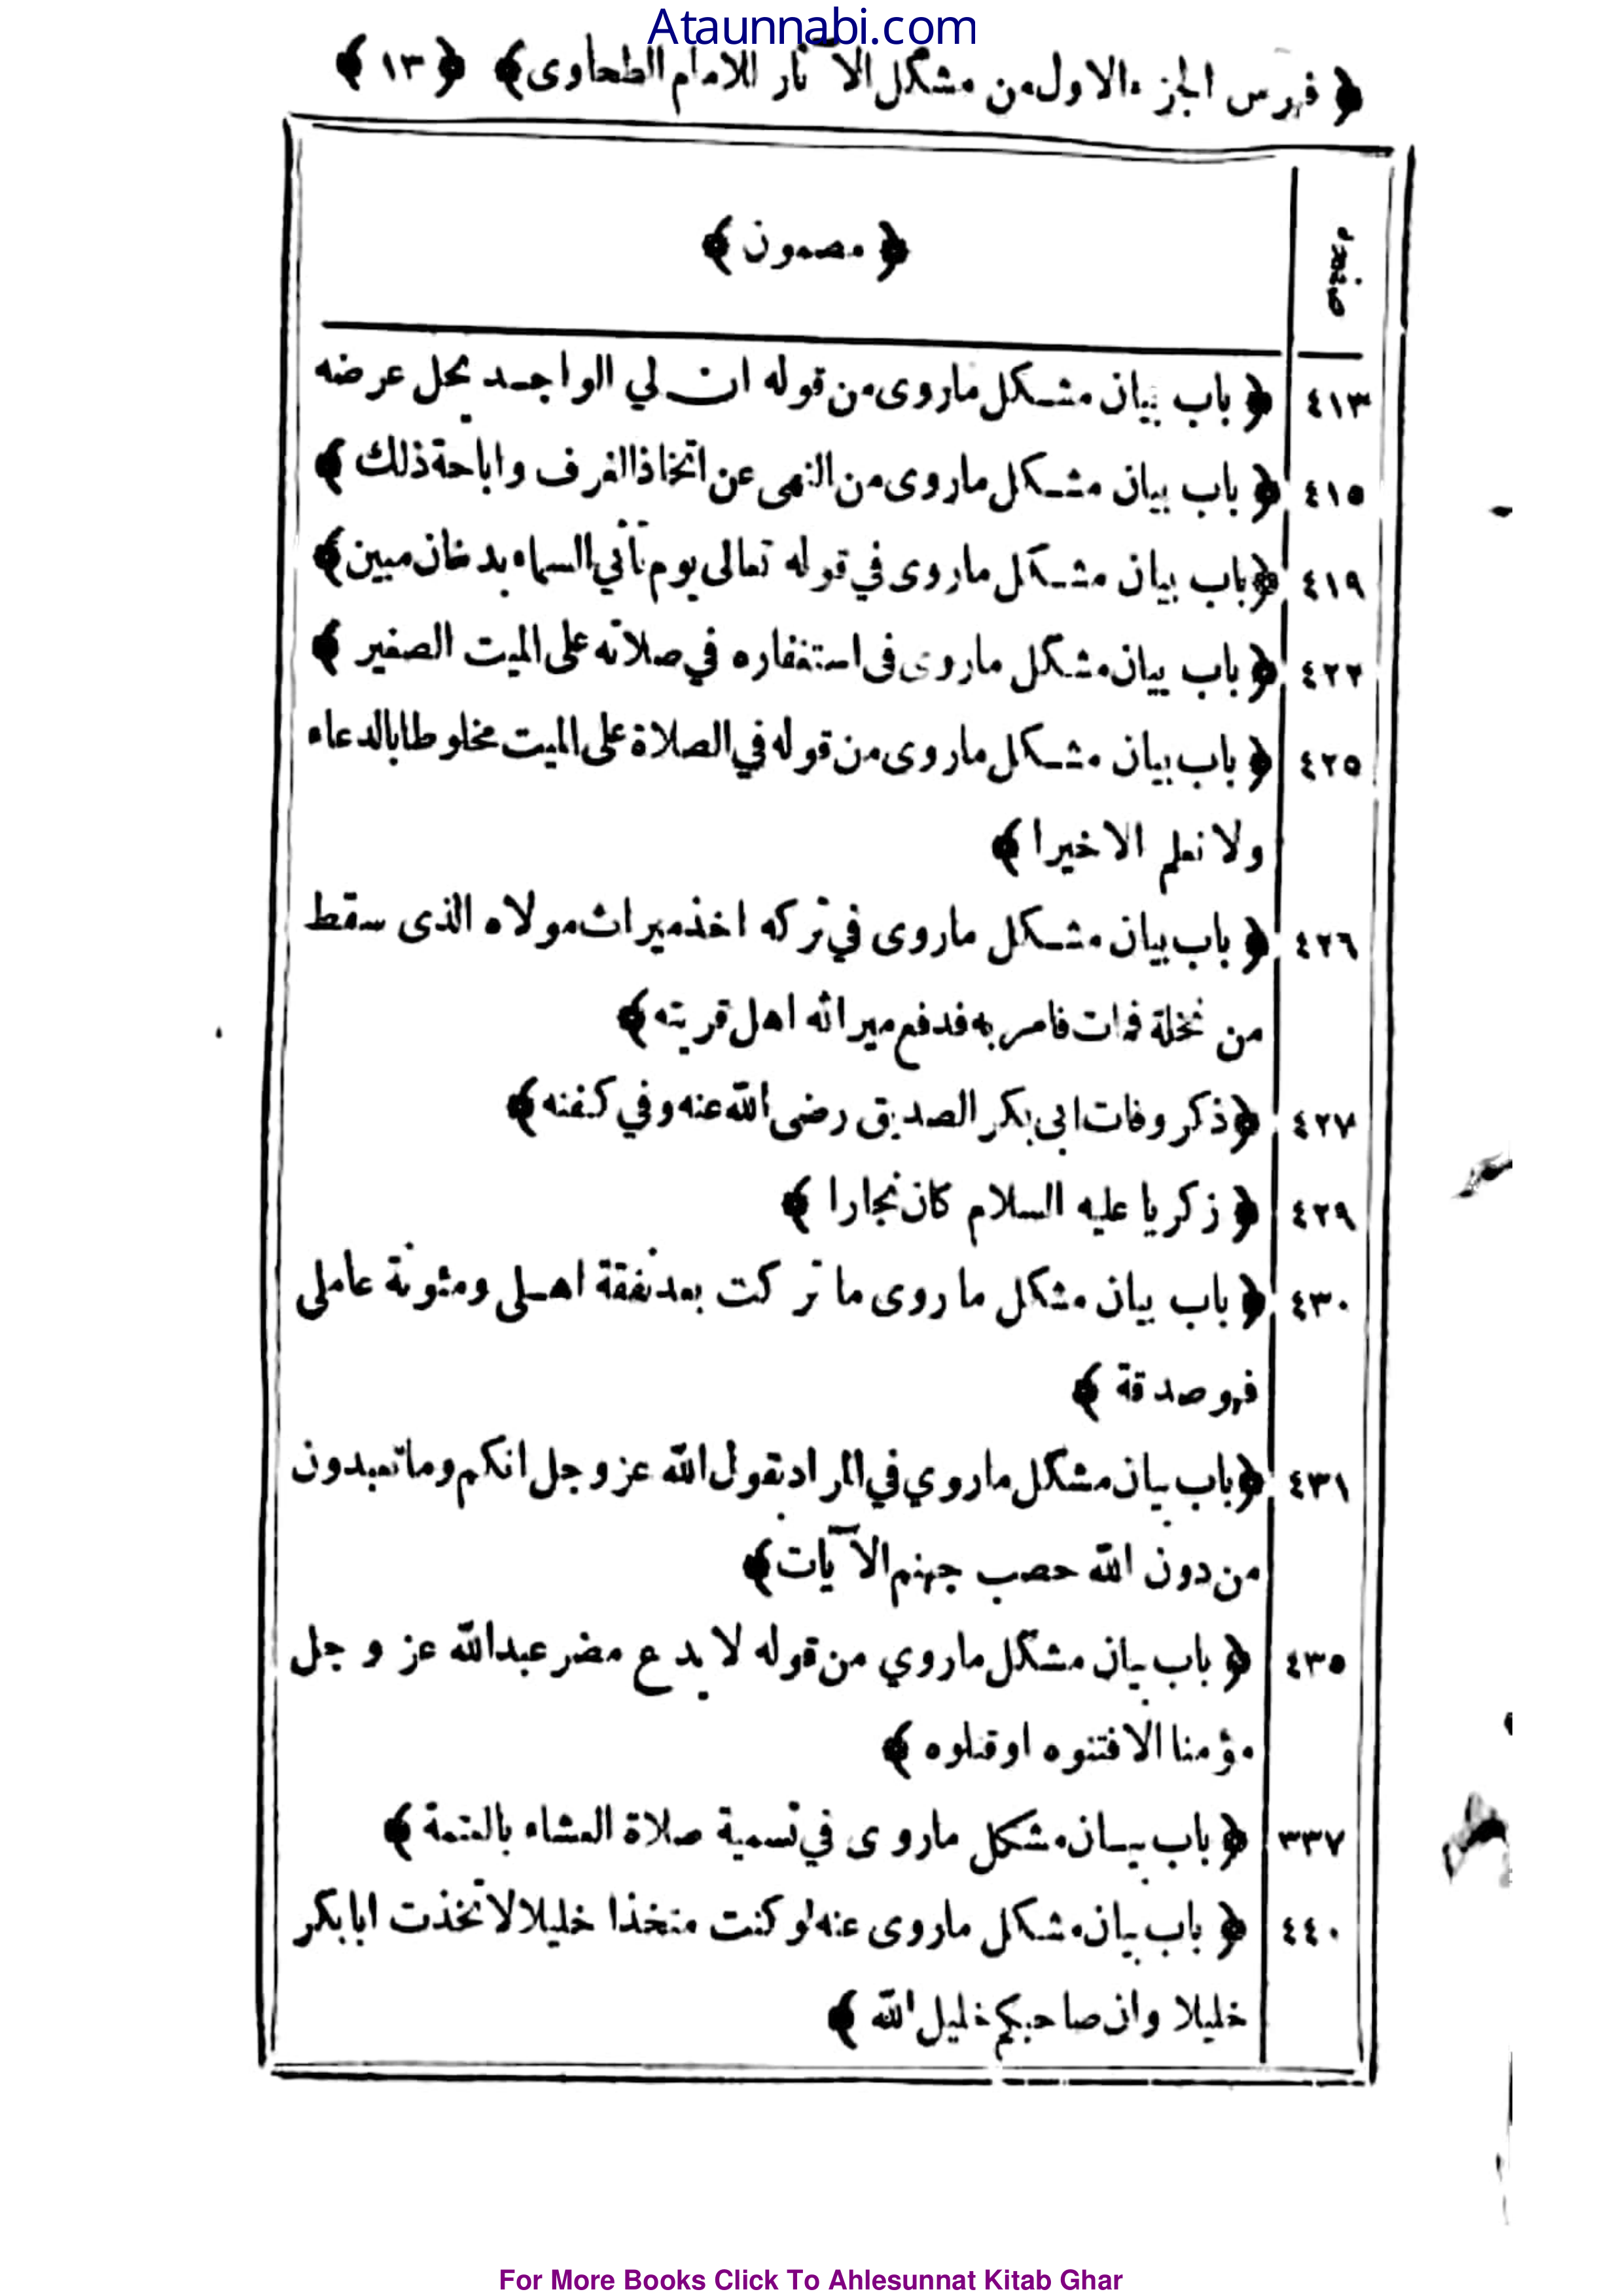 Ataunnabi.com
﴿ فهرس الجزء الاول من مشكل الآثار للامام الطحاوى ﴾ ﴿ ١٣ ﴾
صفحه
﴿ مضمون ﴾
٤١٣ ﴿ باب بيان مشكل ماروى من قوله ان لي الواجد يحل عرضه
٤١٥ ﴿ باب بيان مشكل ماروى من النهى عن اتخاذ الغرف واباحة ذلك ﴾
٤١٩ ﴿ باب بيان مشكل ماروى في قوله تعالى يوم تأتي السماء بدخان مبين ﴾
٤٢٢ ﴿ باب بيان مشكل ماروى فى استغفاره في صلاته على الميت الصغير ﴾
٤٢٥ ﴿ باب بيان مشكل ماروى من قوله في الصلاة على الميت مخلوطا بالدعاء
ولا نعلم الا خيرا ﴾
٤٢٦ ﴿ باب بيان مشكل ماروى في تركه اخذ ميراث مولاه الذى سقط
من نخلة فمات فامر به فدفع ميراثه اهل قريته ﴾
٤٢٧ ﴿ ذكر وفات ابى بكر الصديق رضى الله عنه وفي كفنه ﴾
٤٢٩ ﴿ زكريا عليه السلام كان نجارا ﴾
٤٣٠ ﴿ باب بيان مشكل ما روى ما تركت بعد نفقة اهلى ومئونة عاملى
فهو صدقة ﴾
٤٣١ ﴿ باب بيان مشكل ماروي في المراد بقول الله عز وجل انكم وما تعبدون
من دون الله حصب جهنم الآيات ﴾
٤٣٥ ﴿ باب بيان مشكل ماروي من قوله لا يدع مضر عبدالله عز و جل
مؤمنا الا فتنوه او قتلوه ﴾
٣٣٧ ﴿ باب بيان مشكل ماروى في تسمية صلاة العشاء بالعتمة ﴾
٤٤٠ ﴿ باب بيان مشكل ماروى عنه لو كنت متخذا خليلا لاتخذت ابابكر
خليلا وان صاحبكم خليل الله ﴾
For More Books Click To Ahlesunnat Kitab Ghar